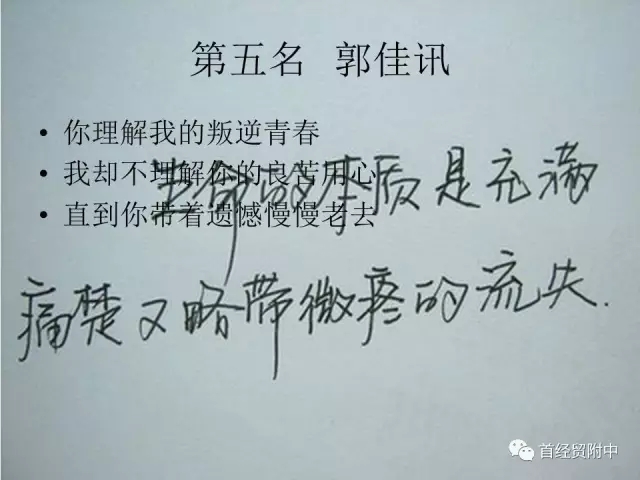 第五名 郭佳讯
• 你理解我的叛逆青春
• 我却不理解你的良苦用心
• 直到你带着遗憾慢慢老去
生命的本质是充满
痛楚又略带微疼的流失.
首经贸附中